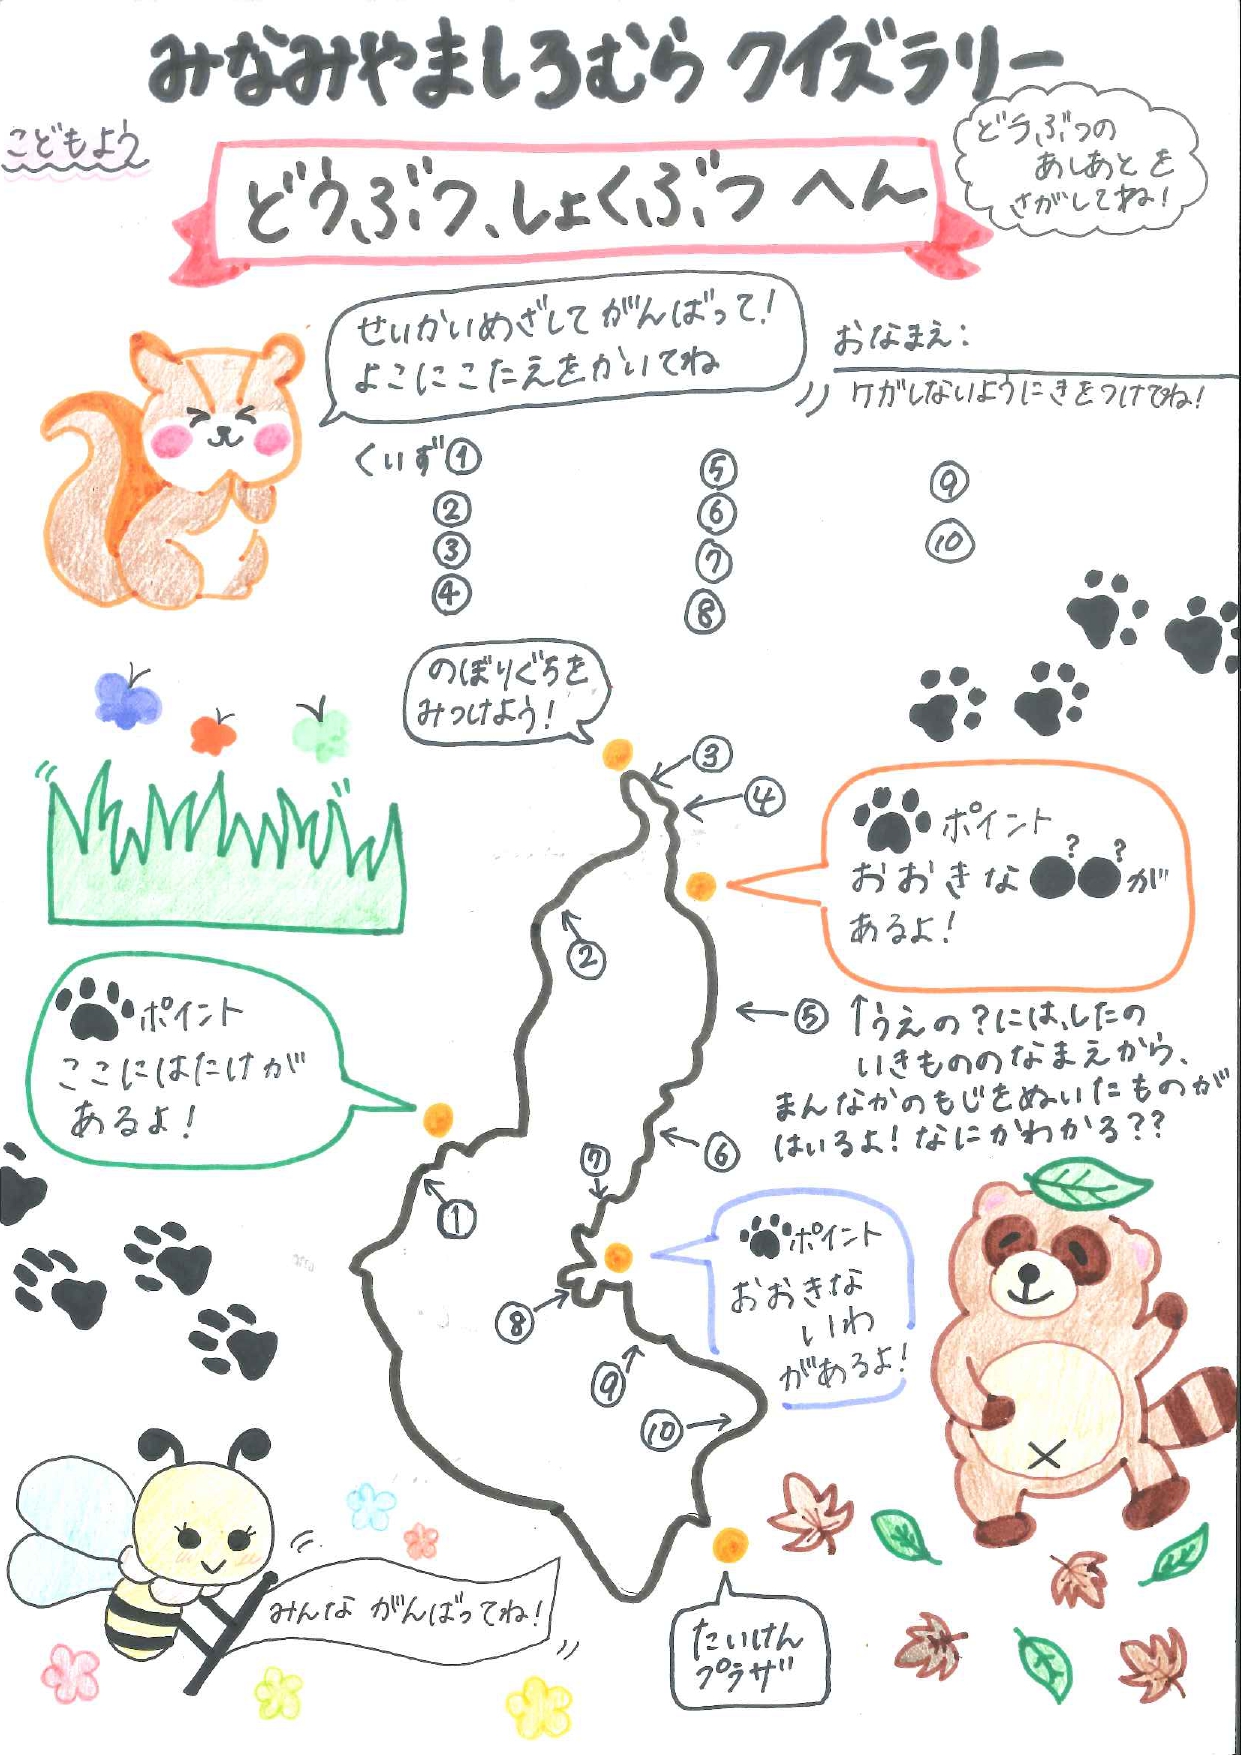 みなみやましろむら クイズラリー
こどもよう
どうぶつ、しょくぶつ へん
どうぶつの
あしあとを
さがしてね!
せいかいめざして がんばって!
よこにこたえをかいてね
おなまえ:
ケガしないようにきをつけてね!
くいず①
②
③
④
⑤
⑥
⑦
⑧
⑨
⑩
のぼりぐちを
みつけよう!
③
④
ポイント
おおきな●●が
? ?
あるよ!
②
ポイント
ここにはたけが
あるよ!
⑤
↑うえの?には、したの
いきもののなまえから、
まんなかのもじをぬいたものが
はいるよ!なにかわかる??
⑥
⑦
①
ポイント
おおきな
いわ
があるよ!
⑧
⑨
⑩
みんな がんばってね!
たいけん
プラザ